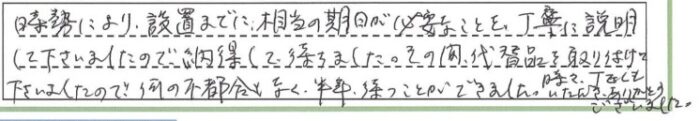 時勢により、設置までに、相当の期日が必要なことを、丁寧に説明
して下さいましたので、納得して、待ちました。その間、代替品を取り付けて
下さいましたので、何の不都合もなく、半年、待つことができました。
いただき、ありがとう
ございました。